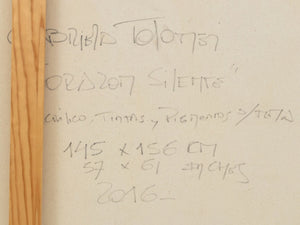 GABRIELA TOLOMEI
"CORAZON SILENTE"
ACRÍLICO, TINTAS, y PIGMENTOS S/TELA
145 x 156 CM
57 x 61 INCHES
2016_